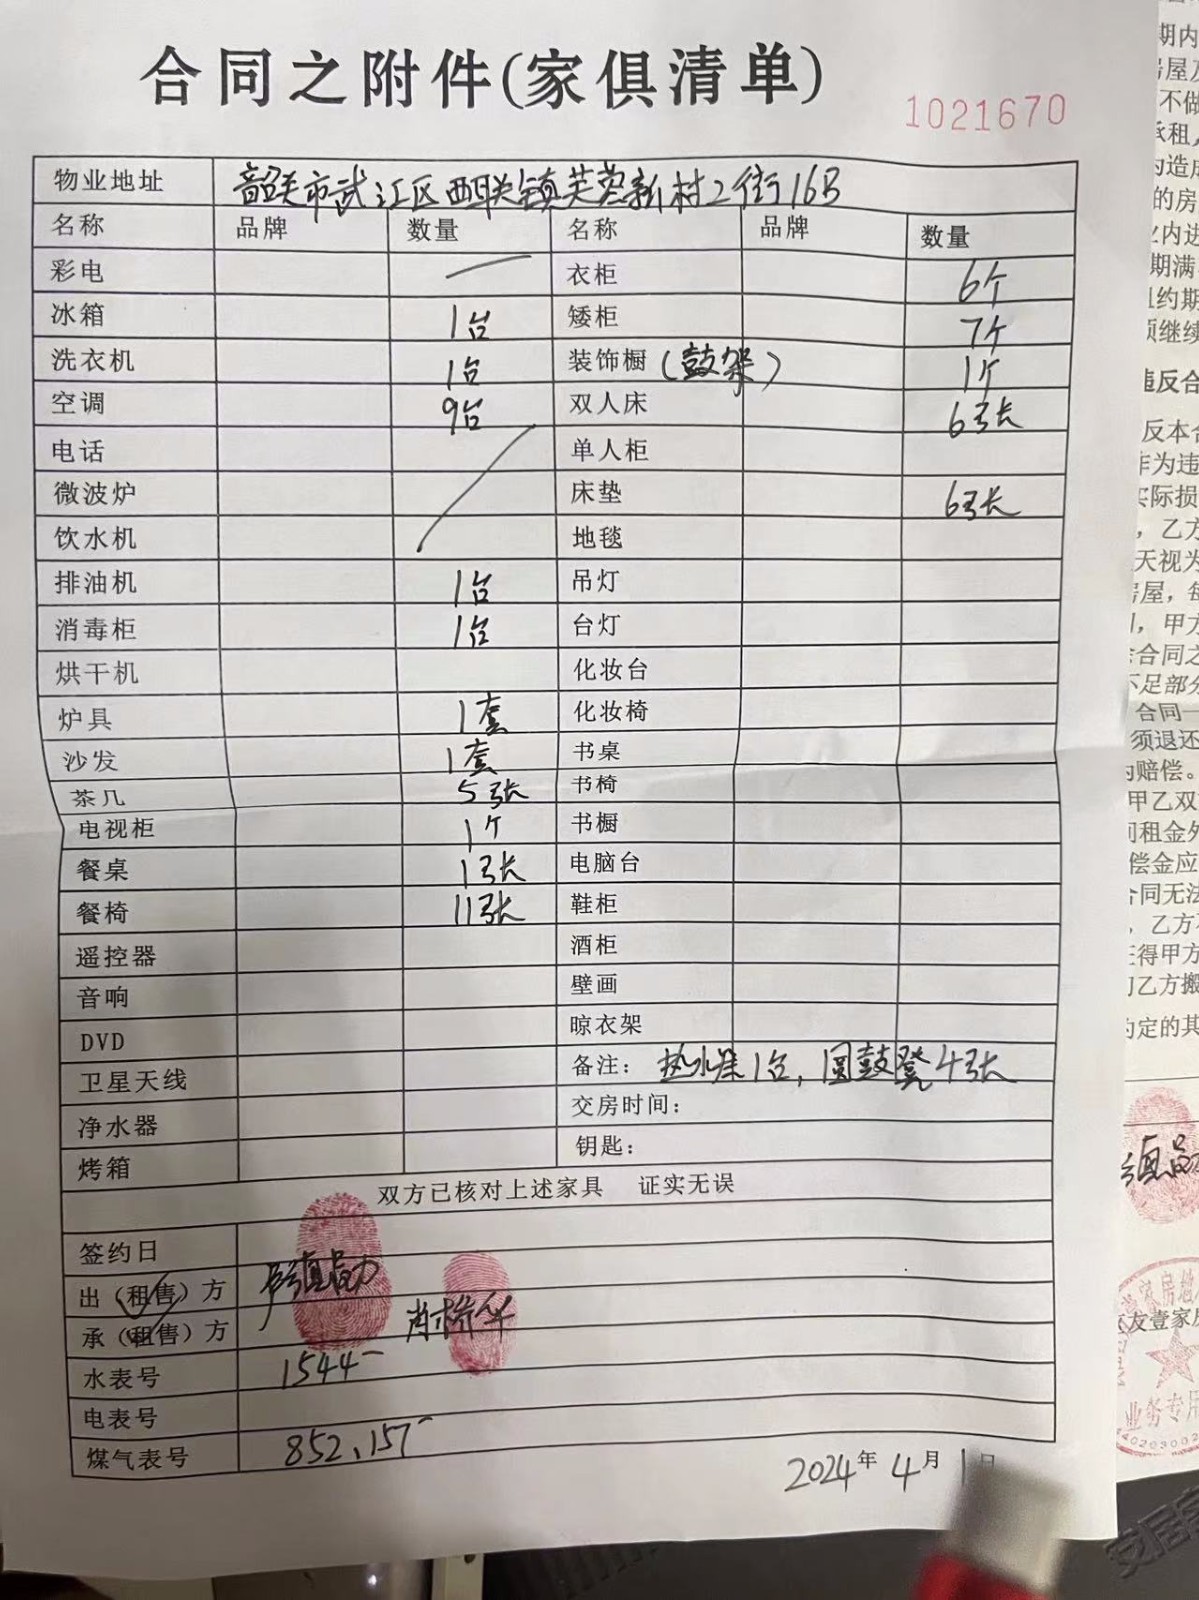 合同之附件(家俱清单)
1021670
物业地址 韶关市武江区西联镇芙蓉新村2街16号
名称 品牌 数量 名称 品牌 数量
彩电 衣柜 6个
冰箱 1台 矮柜 7个
洗衣机 1台 装饰橱(鼓架) 1个
空调 9台 双人床 6张
电话 单人柜
微波炉 床垫 6张
饮水机 地毯
排油机 1台 吊灯
消毒柜 1台 台灯
烘干机 化妆台
炉具 1套 化妆椅
沙发 1套 书桌
茶几 5张 书椅
电视柜 1个 书橱
餐桌 1张 电脑台
餐椅 11张 鞋柜
遥控器 酒柜
音响 壁画
DVD 晾衣架
卫星天线 备注: 热水器1台,圆鼓凳4张
净水器 交房时间:
烤箱 钥匙:
双方已核对上述家具 证实无误
签约日
出(租售)方
承(租售)方
水表号 1544
电表号
煤气表号 852、157
2024年4月1日
期内
房屋
不做
承租
造成
的房
内进
期满
约期
须继续
违反合
反本合
作为违
实际损
,乙方
天视为
房屋,每
,甲方
合同之
不足部分
合同一
须退还
赔偿。
甲乙双
租金外
偿金应
合同无法
,乙方
得甲方
乙方搬
约定的其
友壹家
业务专用
安居